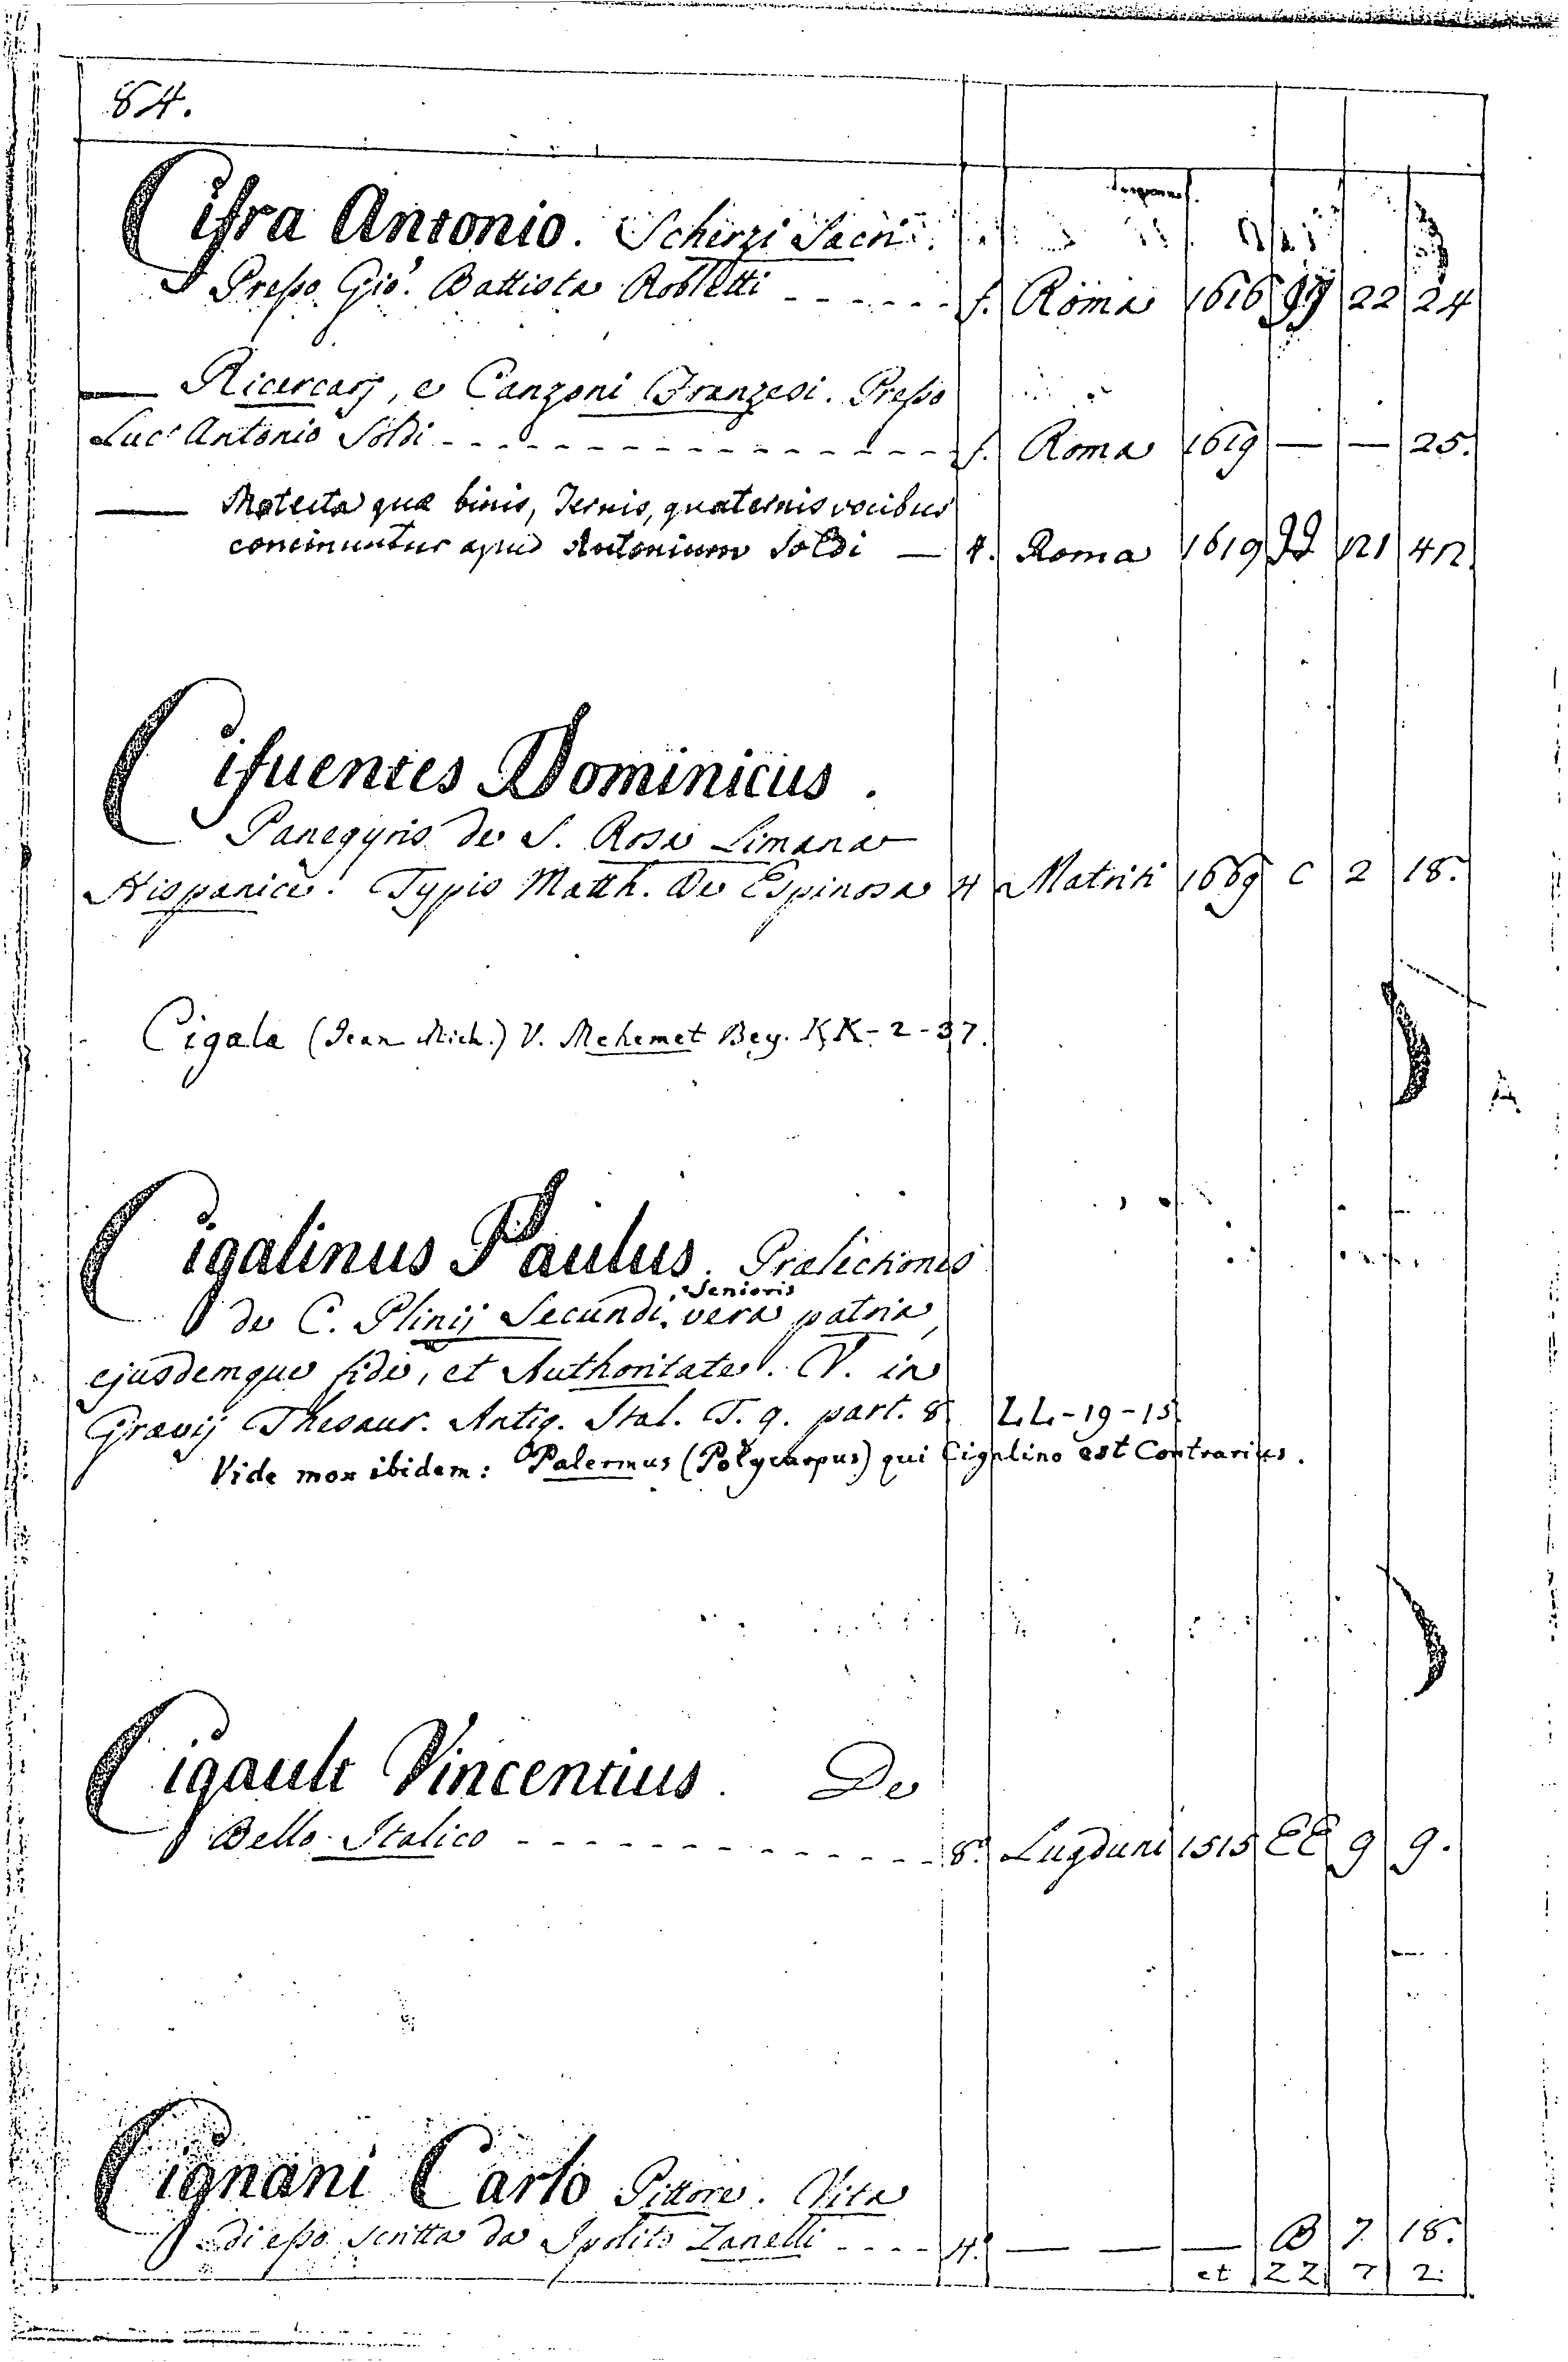 84.
Cifra Antonio. Scherzi Sacri.
Presso Gio. Battista Robletti - - - - - - f. Roma 1616 99 22 24
— Ricercarj, e Canzoni Franzesi. Presso
Luc' Antonio Soldi - - - - - - - - - - - - - - - - f. Roma 1619 — — 25.
— Motecta quæ binis, Ternis, quaternis vocibus
concinuntur apud Antonium Soldi — 4. Roma 1619
Cifuentes Dominicus.
Panegyris de S. Rosa Limana
Hispanice. Typis Matth. De Espinosa 4 Matriti 1669 C 2 18.
Cigala (Jean Mich.) V. Mehemet Bey. KK-2-37.
Cigalinus Paulus. Prælectiones
de C. Plinij Secundi Senioris vera patria,
ejusdemque fide, et Authoritate. V. in
Grævij Thesaur. Antiq. Ital. T. 9. part. 8 LL-19-15
Vide mox ibidem: Palermus (Polycarpus) qui Cigalino est Contrarius.
Cigault Vincentius. De
Bello Italico - - - - - - - - - - - - - 8º. Lugduni 1515 EE 9 9.
Cignani Carlo Pittore. Vita
di esso scritta da Ipolito Zanelli - - - - 4º. — — — B 7. 18.
et ZZ 7 2.